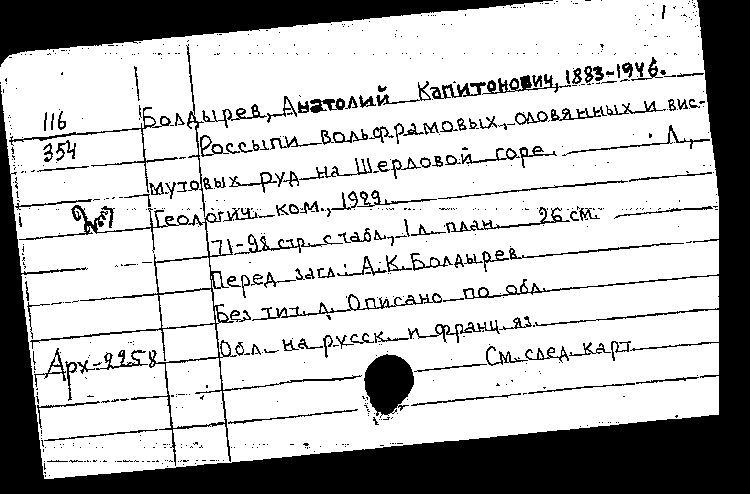 1
116
354
Болдырев, Анатолий Капитонович, 1883-1946.
Россыпи вольфрамовых, оловянных и вис-
мутовых руд на Шерловой горе. Л.,
Геологич. ком., 1929.
71-98 стр. с табл., 1 л. план. 26 см.
Перед загл.: А.К.Болдырев.
Без тит. л. Описано по обл.
Обл. на русск. и франц. яз.
Арх-2258
См. след. карт.